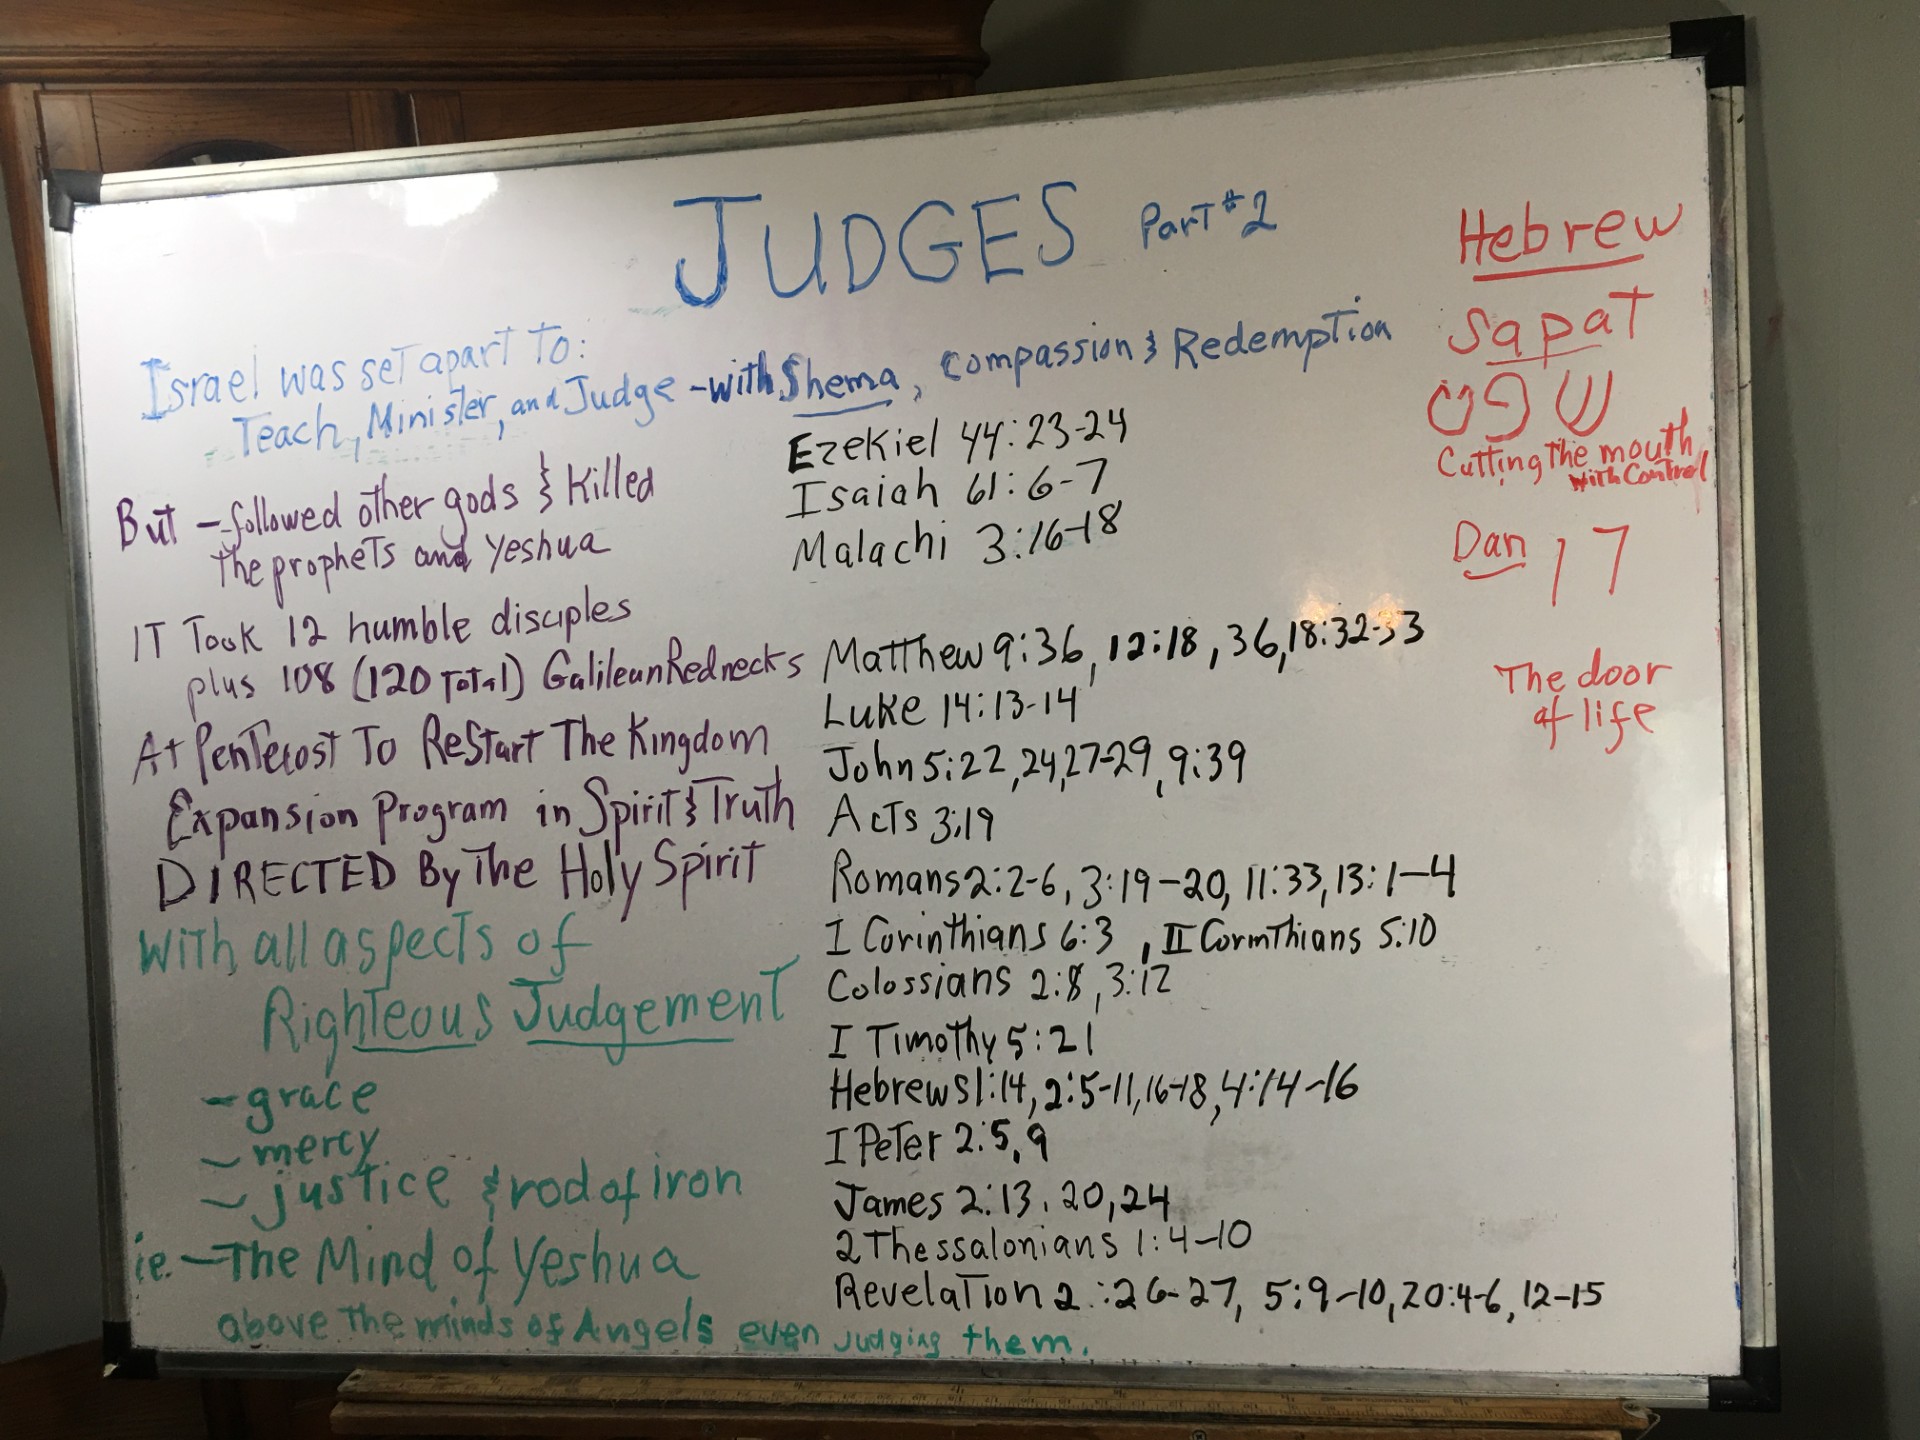 JUDGES Part #2
Israel was set apart to:
Teach, Minister, and Judge - with Shema, compassion & Redemption
But - followed other gods & killed
the prophets and Yeshua
IT Took 12 humble disciples
plus 108 (120 Total) Galilean Rednecks
At Pentecost To ReStart The Kingdom
Expansion Program in Spirit & Truth
DIRECTED By The Holy Spirit
With all aspects of
Righteous Judgement
- grace
- mercy
- justice & rod of iron
ie. - The Mind of Yeshua
above the minds of Angels even judging them.
Ezekiel 44:23-24
Isaiah 61:6-7
Malachi 3:16-18
Matthew 9:36, 12:18, 36, 18:32-33
Luke 14:13-14
John 5:22, 24, 27-29, 9:39
Acts 3:19
Romans 2:2-6, 3:19-20, 11:33, 13:1-4
I Corinthians 6:3, II Corinthians 5:10
Colossians 2:8, 3:12
I Timothy 5:21
Hebrews 1:14, 2:5-11, 16-18, 4:14-16
I Peter 2:5, 9
James 2:13, 20, 24
2 Thessalonians 1:4-10
Revelation 2:26-27, 5:9-10, 20:4-6, 12-15
Hebrew
Sapat
טפש
Cutting The mouth
with Control
Dan ןד
The door
of life